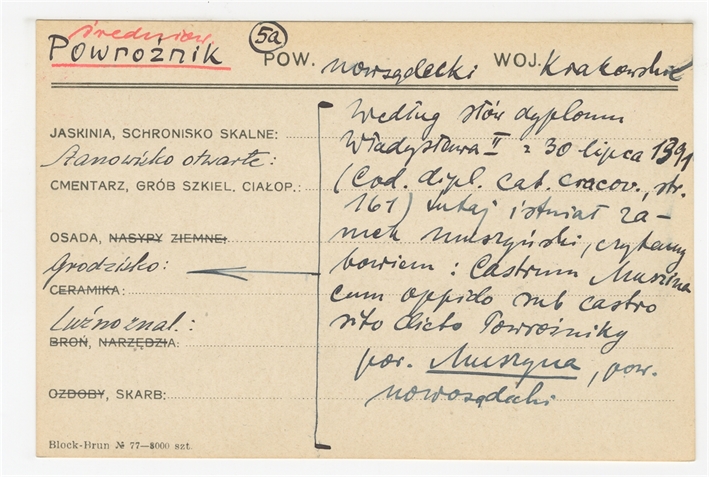 średniow.
Powroźnik (5a) POW. nowsądecki WOJ. Krakowskie
JASKINIA, SCHRONISKO SKALNE:
Stanowisko otwarte:
CMENTARZ, GRÓB SZKIEL, CIAŁOP.:
OSADA, NASYPY ZIEMNE:
Grodzisko:
CERAMIKA:
Luźno znal.:
BROŃ, NARZĘDZIA:
OZDOBY, SKARB:
Według słów dyplomu
Władysława II z 30 lipca 1391
(Cod. dipl. cat. cracov., str.
161) tutaj istniał za-
mek muszyński, czytamy
bowiem: Castrum Muszina
cum oppido sub castro
sito dicto Powroźniky
por. Muszyna, pow.
nowosądecki
Block-Brun № 77—8000 szt.